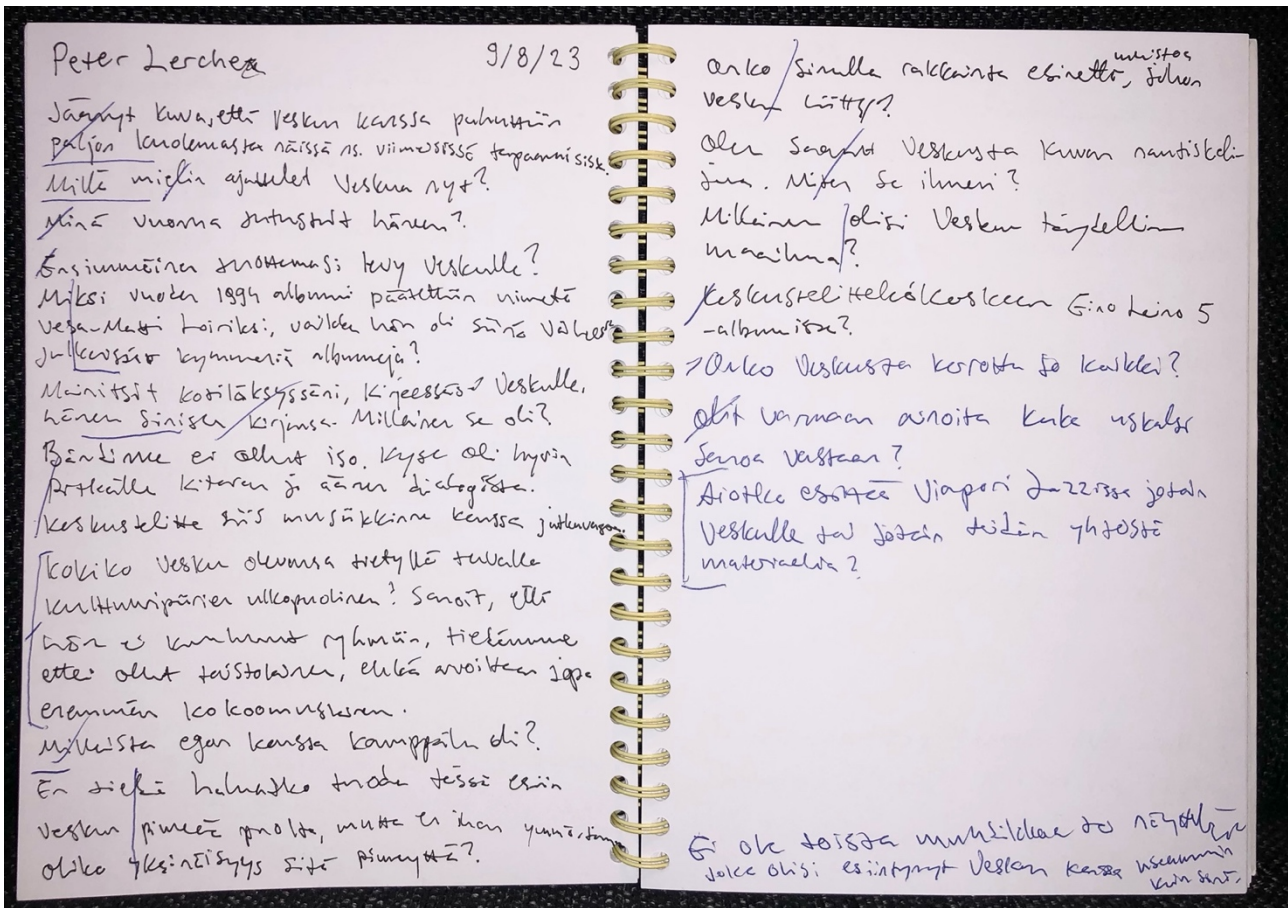 Peter Lerche 9/8/23
Jäänyt kuva, että Veskun kanssa puhuttiin
paljon kuolemasta näissä ns. viimeisissä tapaamisissa.
Millä mielin ajattelet Veskua nyt?
Minä vuonna tutustuit häneen?
Ensimmäinen tuottamasi levy Veskulle?
Miksi vuoden 1994 albumi päätettiin nimetä
Vesa-Matti Loiriksi, vaikka hän oli siinä vaiheessa
julkaissut kymmeniä albumeja?
Mainitsit kotiläksyssäni, kirjeessäsi Veskulle,
hänen sinisen kirjansa. Millainen se oli?
Bändinne ei ollut iso. Kyse oli hyvin
pitkälle kitaran ja äänen dialogista.
Keskustelitte siis musiikkinne kanssa jatkuvasti.
Kokiko Vesku olevansa tietyllä tavalla
kulttuuripiirien ulkopuolinen? Sanoit, että
hän ei kuulunut ryhmiin, tiedämme
ettei ollut taistolainen, ehkä arvoiltaan jopa
enemmän kokoomuslainen.
Millaista egon kanssa kamppailu oli?
En tiedä haluatko tuoda tässä esiin
Veskun pimeää puolta, mutta en ihan ymmärtänyt
oliko yksinäisyys sitä pimeyttä?
Onko sinulla rakkainta esinettä, muistoa johon
Vesku liittyy?
Olen saanut Veskusta kuvan nautiskeli-
jana. Miten se ilmeni?
Millainen olisi Veskun täydellinen
maailma?
Keskustelitteko keskenään Eino Leino 5
-albumista?
Onko Veskusta kerrottu jo kaikki?
Olit varmaan ainoita kuka uskalsi
sanoa vastaan?
Aiotko esittää Viapori Jazzissa jotain
Veskulle tai jotain teidän yhteistä
materiaalia?
Ei ole toista muusikkoa tai näyttelijää
joka olisi esiintynyt Veskun kanssa useammin
kuin sinä.